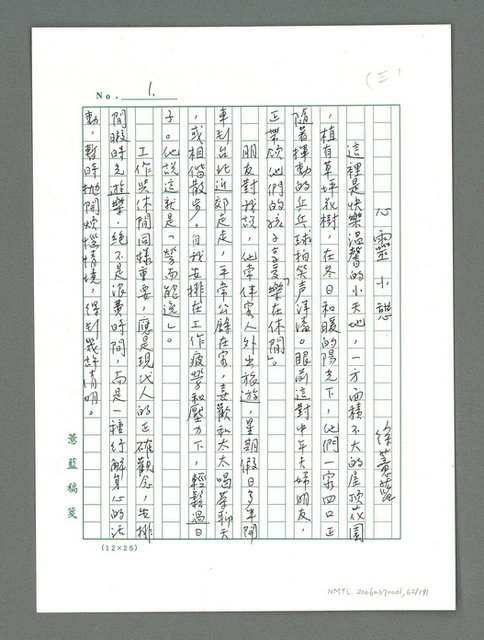 No. 1.
(三)
心靈小憩 徐薏藍
這裡是快樂溫馨的小天地,一方面積不大的屋頂花園
,植有草坪花樹,在冬日和暖的陽光下,他們一家四口正
隨著揮動的乒乓球拍笑聲洋溢。眼前這對中年夫婦朋友,
正帶領他們的孩子享受「樂在休閒」。
朋友對我說,他常伴家人外出旅遊,星期假日多半開
車到台北近郊走走,平常公餘在家,喜歡和太太喝茶聊天
,或相偕散步。自我安排在工作疲勞和壓力下,輕鬆過日
子。他說這就是「勞而能逸」。
工作與休閒同樣重要,應是現代人的正確觀念,安排
閒暇時光遊樂,絕不是浪費時間,而是一種紓解身心的活
動,暫時拋開煩惱情境,得到幾許清明。
薏藍稿箋
(12×25)
NMTL 20060370001, 62/191